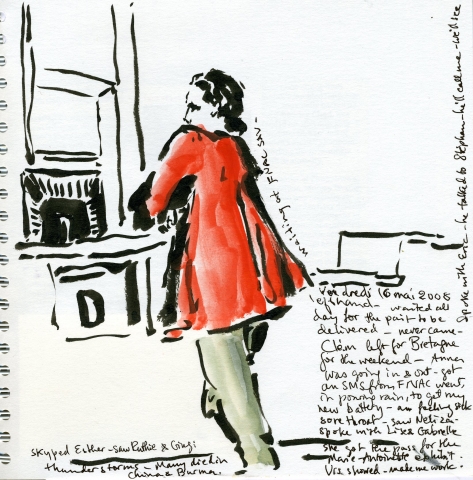 D
waiting at FNAC SAV -
Vendredi 16 mai 2008
waited all
day for the part to be
delivered - never came -
Claire left for Bretagne
for the weekend - Anna
was going in & out - got
an SMS from FNAC went
in pouring rain, to get my
new battery - am feeling sick
sore throat - saw Neliza
spoke with Lisa Gabrielle
she got the pass for the
Marie-Antoinette exhibit
Urs showed - made me work -
spoke with - he talked to Stephan - he'll call me - we'll see
skyped Esther - saw Ruthie &
thunderstorms - Many died in
China & Burma.